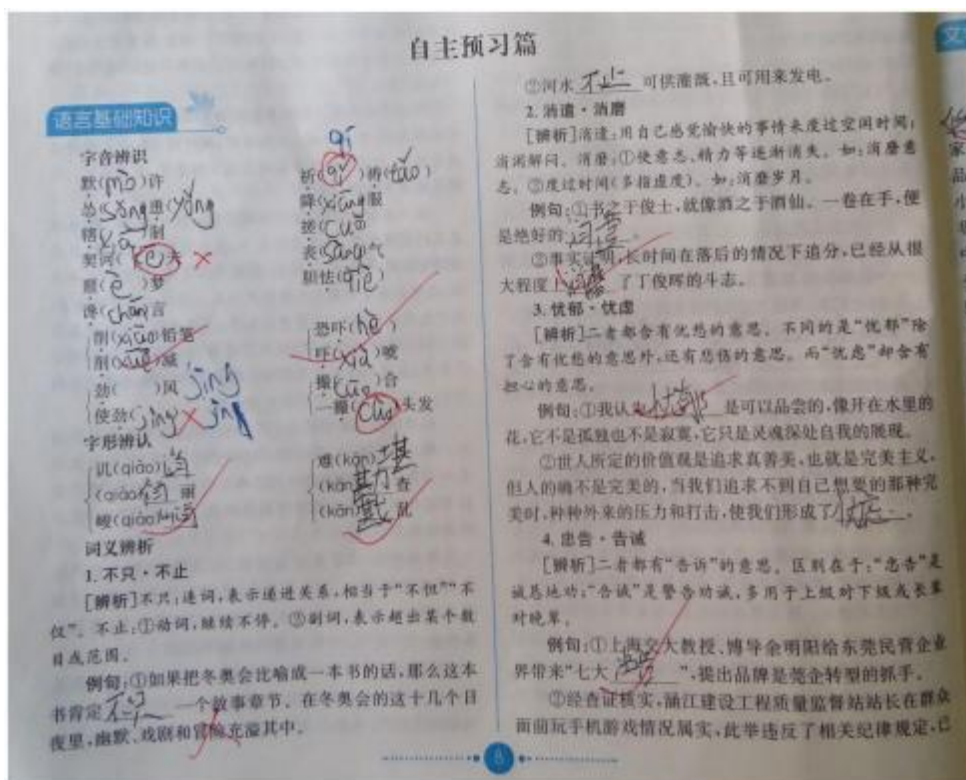 自主预习篇
语言基础知识
字音辨识
默(mò)许
怂(sǒng)恿(yǒng)
辖(xiá)制
契诃(ē)夫
噩(è)梦
谗(chán)言
削(xiāo)铅笔
削(xuē)减
劲( )风 jìng
使劲(jìng) jìn
字形辨认
讥(qiào)诮
(qiào)俏 丽
峻(qiào)峭
词义辨析
1. 不只·不止
[辨析]不只:连词,表示递进关系,相当于“不但”“不
仅”。不止:①动词,继续不停。②副词,表示超出某个数
目或范围。
例句:①如果把冬奥会比喻成一本书的话,那么这本
书肯定不只一个故事章节。在冬奥会的这十几个日
夜里,幽默、戏剧和冒险充溢其中。
qí
祈(qǐ)祷(dǎo)
降(xiáng)服
搓(cuō)
胆怯(qiè)
恐吓(hè)
吓(xià)唬
撮(cuō)合
一撮(cuō)头发
难(kān)堪
(kān)勘 查
(kān)戡 乱
②河水 不止 可供灌溉,且可用来发电。
2. 消遣·消磨
[辨析]消遣:用自己感觉愉快的事情来度过空闲时间;
消闲解闷。消磨:①使意志、精力等逐渐消失。如:消磨意
志。②度过时间(多指虚度)。如:消磨岁月。
例句:①书之于俊士,就像酒之于酒仙。一卷在手,便
是绝好的 消遣 。
②事实证明,长时间在落后的情况下追分,已经从很
大程度上 消磨 了丁俊晖的斗志。
3. 忧郁·忧虑
[辨析]二者都含有忧愁的意思。不同的是“忧郁”除
了含有忧愁的意思外,还有悲伤的意思。而“忧虑”却含有
担心的意思。
例句:①我认为 忧郁 是可以品尝的,像开在水里的
花,它不是孤独也不是寂寞,它只是灵魂深处自我的展现。
②世人所定的价值观是追求真善美,也就是完美主义,
但人的确不是完美的,当我们追求不到自己想要的那种完
美时,种种外来的压力和打击,使我们形成了 忧虑 。
4. 忠告·告诫
[辨析]二者都有“告诉”的意思。区别在于:“忠告”是
诚恳地劝;“告诫”是警告劝诫,多用于上级对下级或长辈
对晚辈。
例句:①上海交大教授、博导余明阳给东莞民营企业
界带来“七大 忠告 ”,提出品牌是莞企转型的抓手。
②经查证核实,涵江建设工程质量监督站站长在群众
面前玩手机游戏情况属实,此举违反了相关纪律规定,已
8